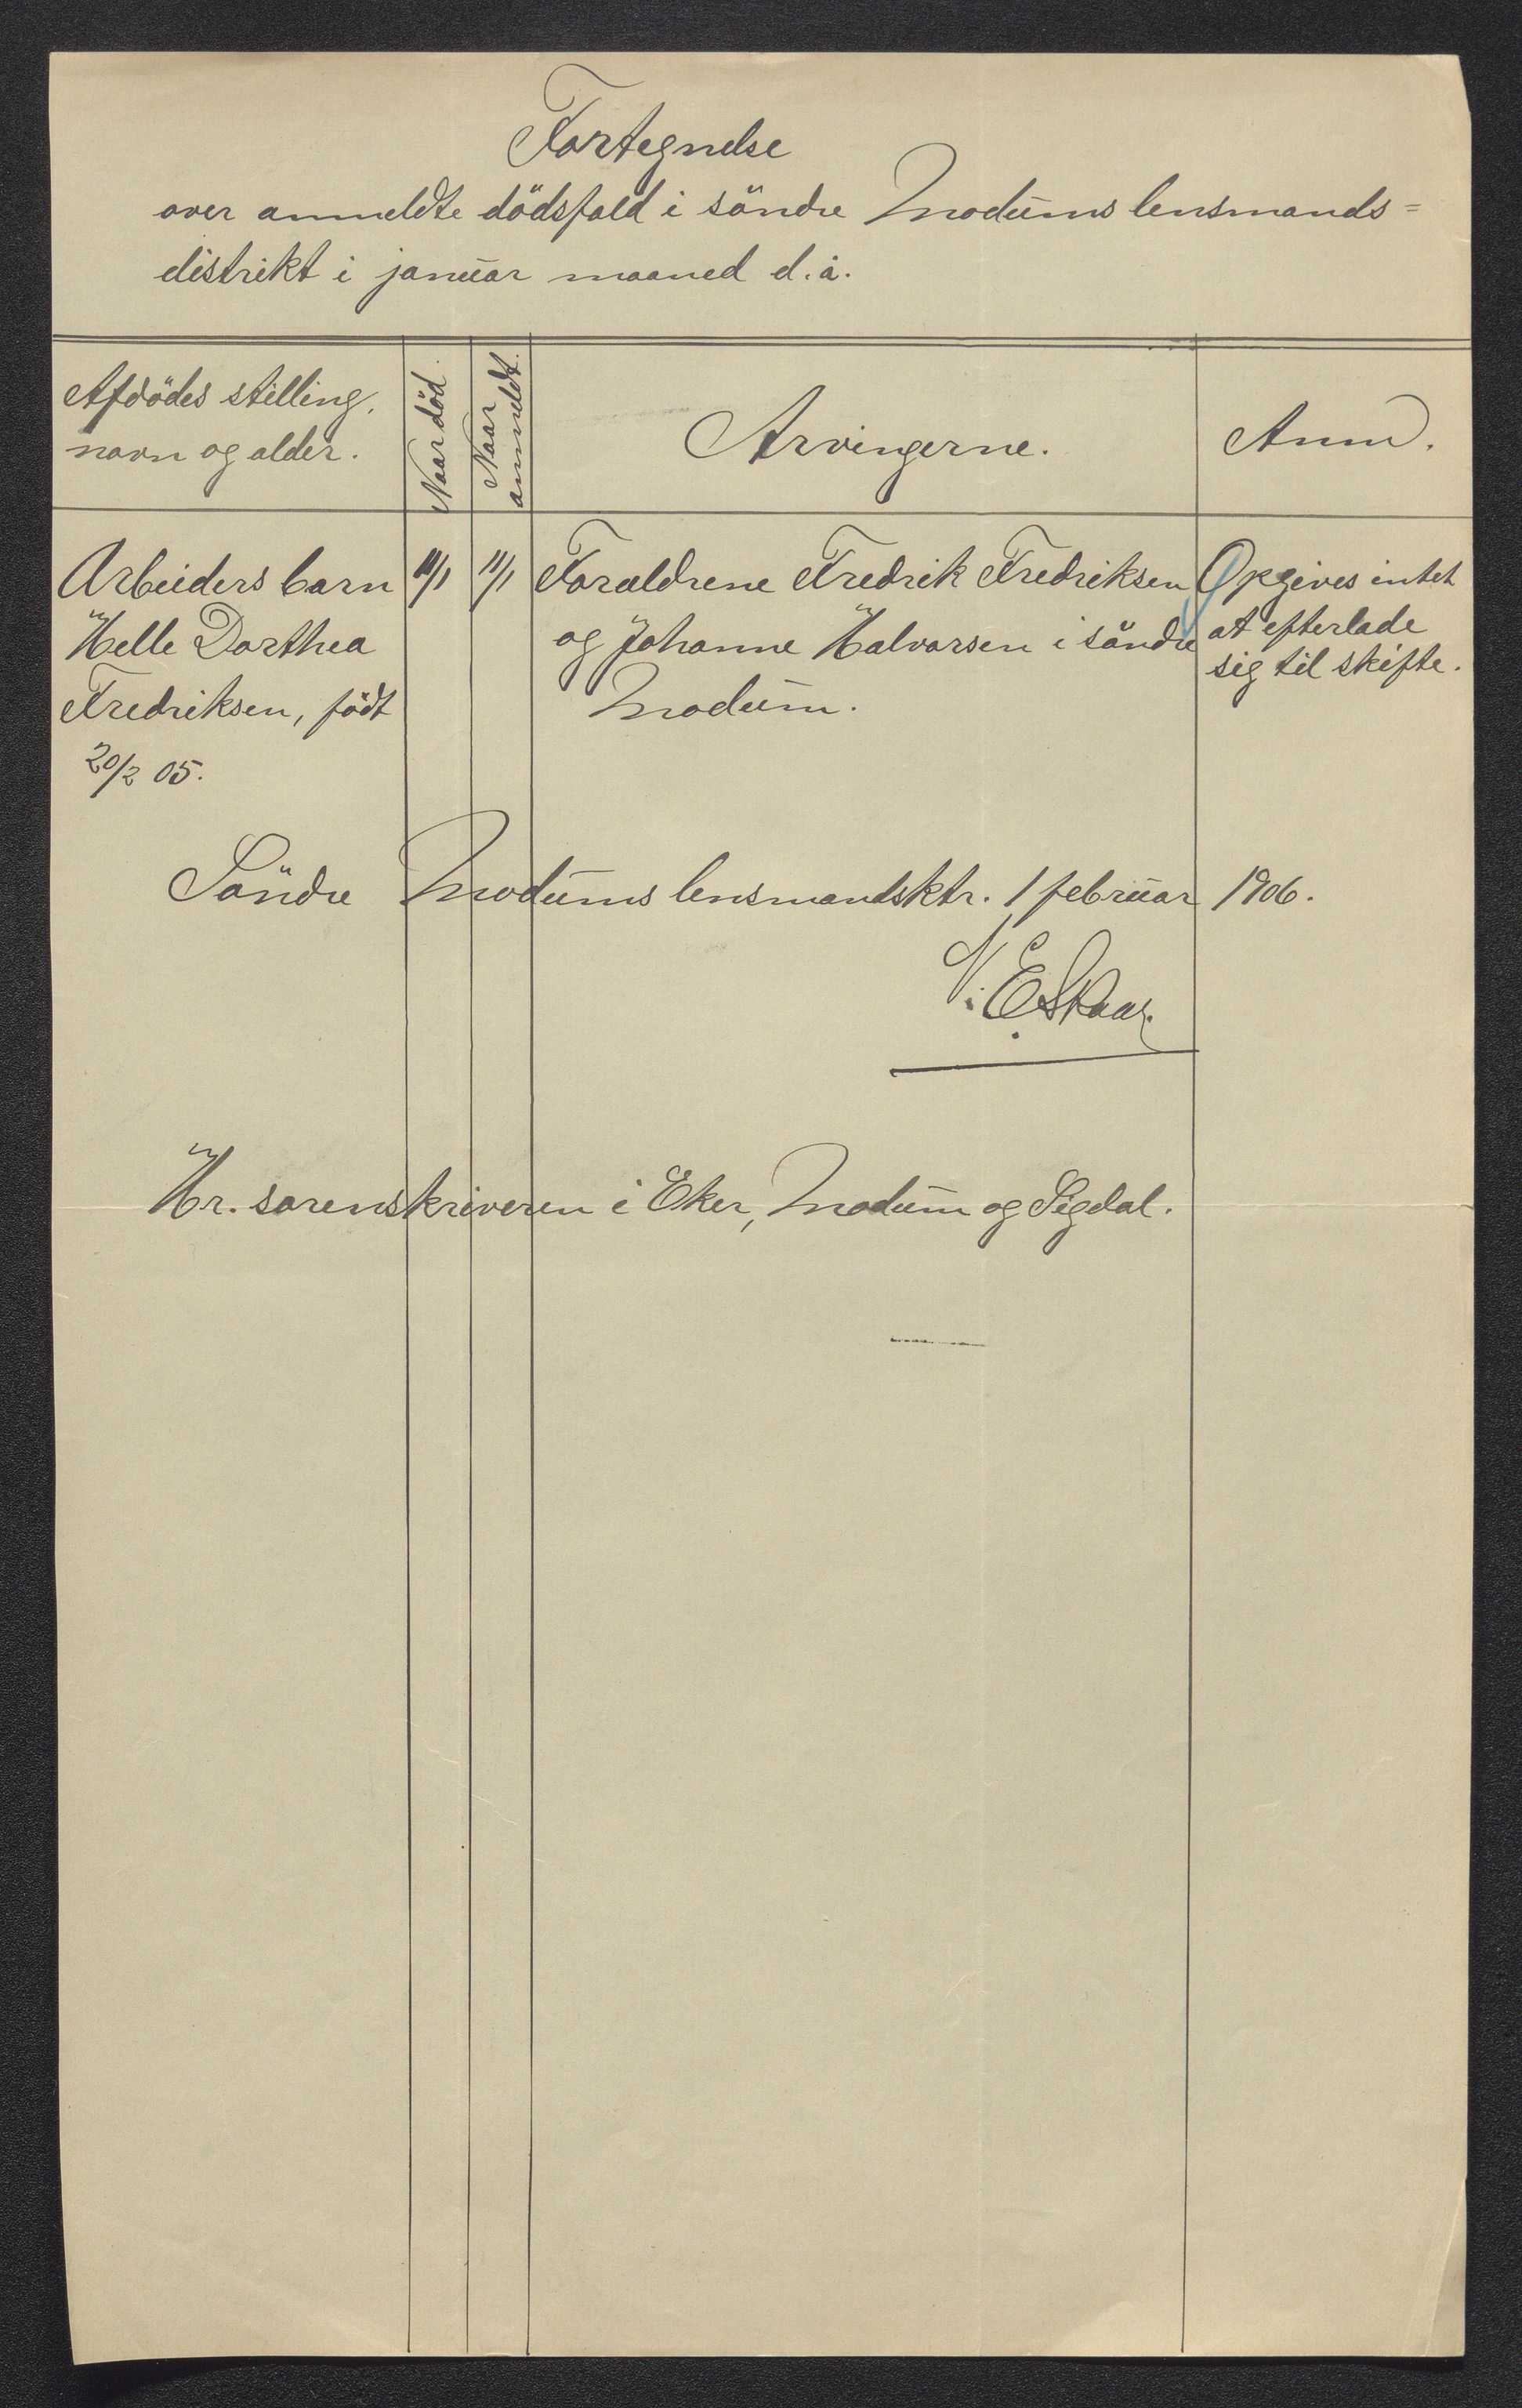 Fortegnelse
over anmeldte dödsfald i söndre Modums lensmands=
distrikt i januar maaned d. å.
Afdödes stilling, navn og alder.
Naar död.
Naar anmeldt.
Arvingerne.
Anm.
Arbeiders barn
Helle Dorthea
Fredriksen, födt
20/2 05.
11/1
Foraldrene Fredrik Fredriksen
og Johanne Halvorsen i söndre
Modum.
Opgives intet
at efterlade
sig til skifte.
Söndre Modums lensmandsktr. 1 februar 1906.
N. E. Skaar
Hr. sorenskriveren i Eker, Modum og Sigdal.